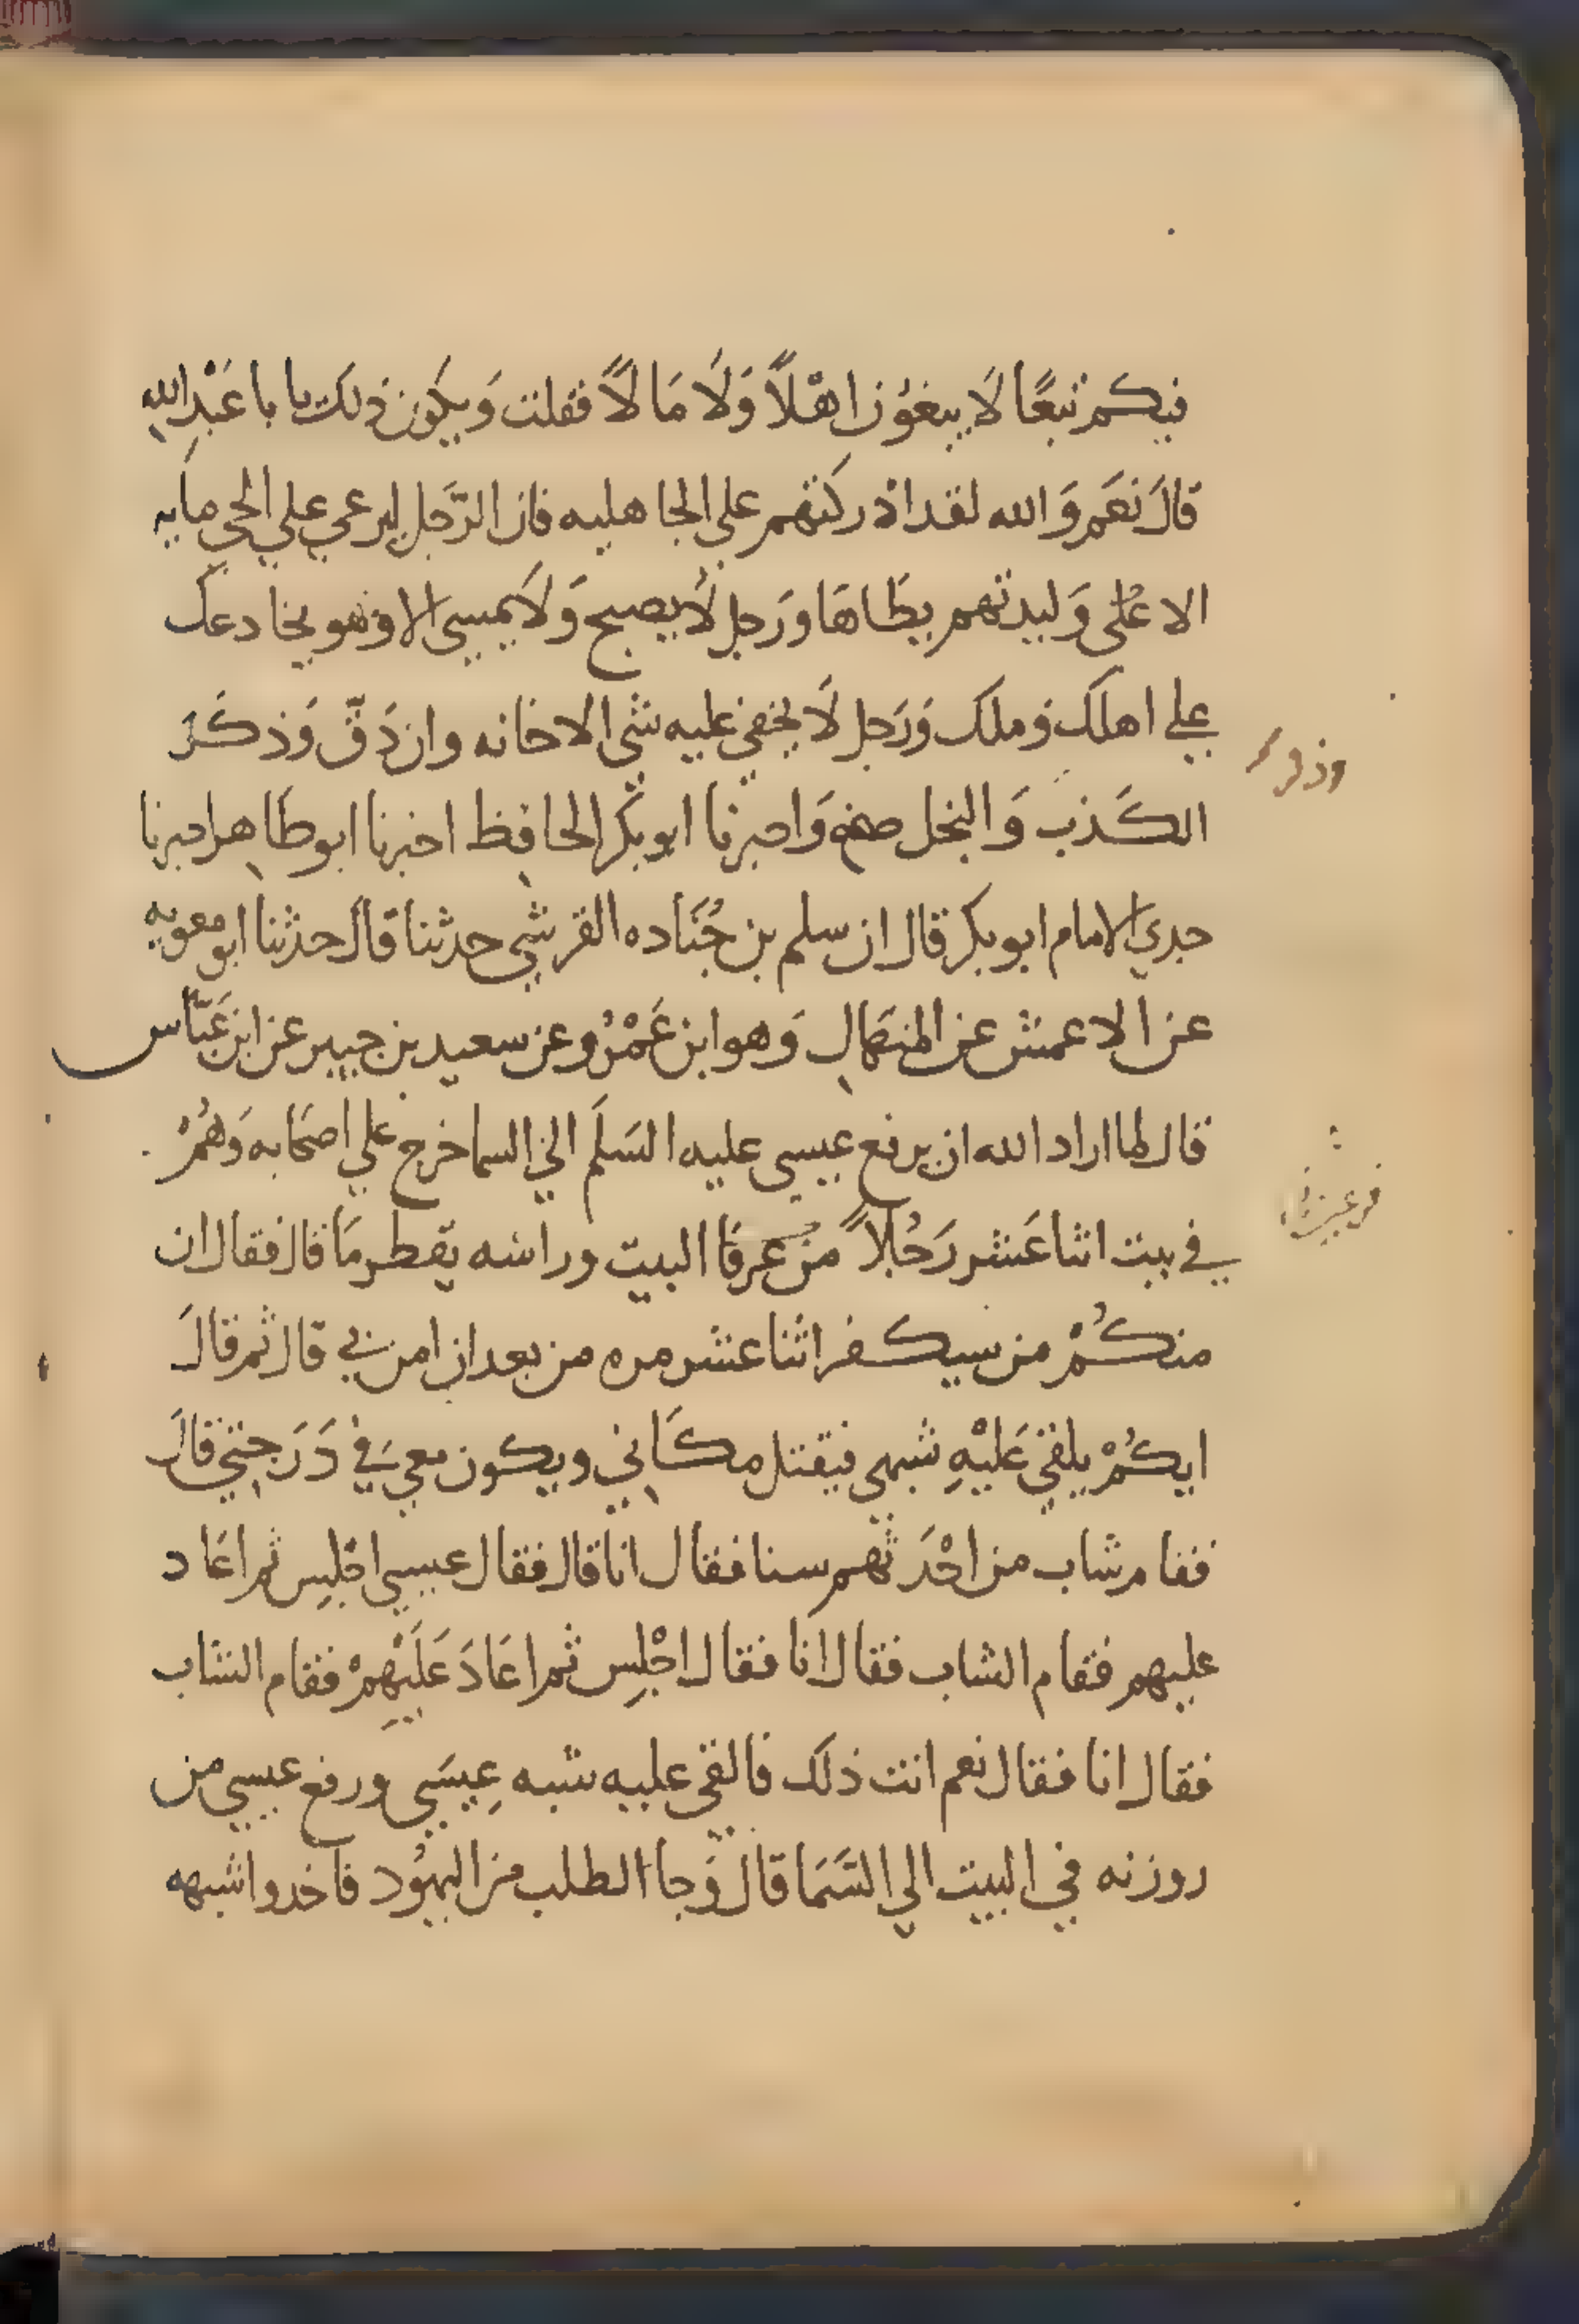 فيكم تبعًا لَا يبغوُن اهْلاً وَلَا مَالاً فقلت وَيكون ذلك يا با عَبْدِ اللهِ
قالَ نعَم وَالله لقد ادْركتهم علي الجاهليه فان الرَّجل ليرعي علي الحي مابه
الا عْلي وَليدتهم يطَاهَا وَرَجل لَا يصبح وَلَا يمسي الا وَهو يخادعك
علي اهلك وَملك وَرَجل لَا يخفي عليه شي الا خانه وان دَقّ وَذكَر
الكَذب وَالبخل صح وَاخبرنا ابو بكر الحافظ اخبرنا ابو طَاهر اخبرنا
جدي الامام ابو بكر قال ان سلم بن جُنَاده القرشي حدثنا قال حدثنا ابو معويه
عن الاعمش عن المنهال وَهو ابن عَمْرُو عن سعيد بن جبير عن ابن عَبّاس
قال لما اراد الله ان يرفع عيسي عليه السَلَم الي السما خرج علي اصحَابه وَهُمْ
في بيت اثنا عَشر رَجُلاً من عرفا البيت وراسه يقطر مَا قال فقال ان
منكُمْ من سيكفر اثنا عشر مره من بعد ان امن بي قال ثم قالَ
ايكُمْ يلقي عَليْهِ شبهي فيقتل مكَاني ويكون معي في دَرَجتي قالَ
فقام شاب من احْدَثهم سنا فقال انا قال فقال عيسي اجْلِس ثم اعَاد
عليهم فقام الشاب فقال انا فقال اجْلِس ثم اعَادَ عَلَيْهِمْ فقام الشاب
فقال انا فقال نعم انت ذلك فالقي عليه شبه عِيسَي ورفع عيسي من
روزنه في البيت الي السَّمَا قال وَجا الطلب من اليهوُد فاخدوا شبهه